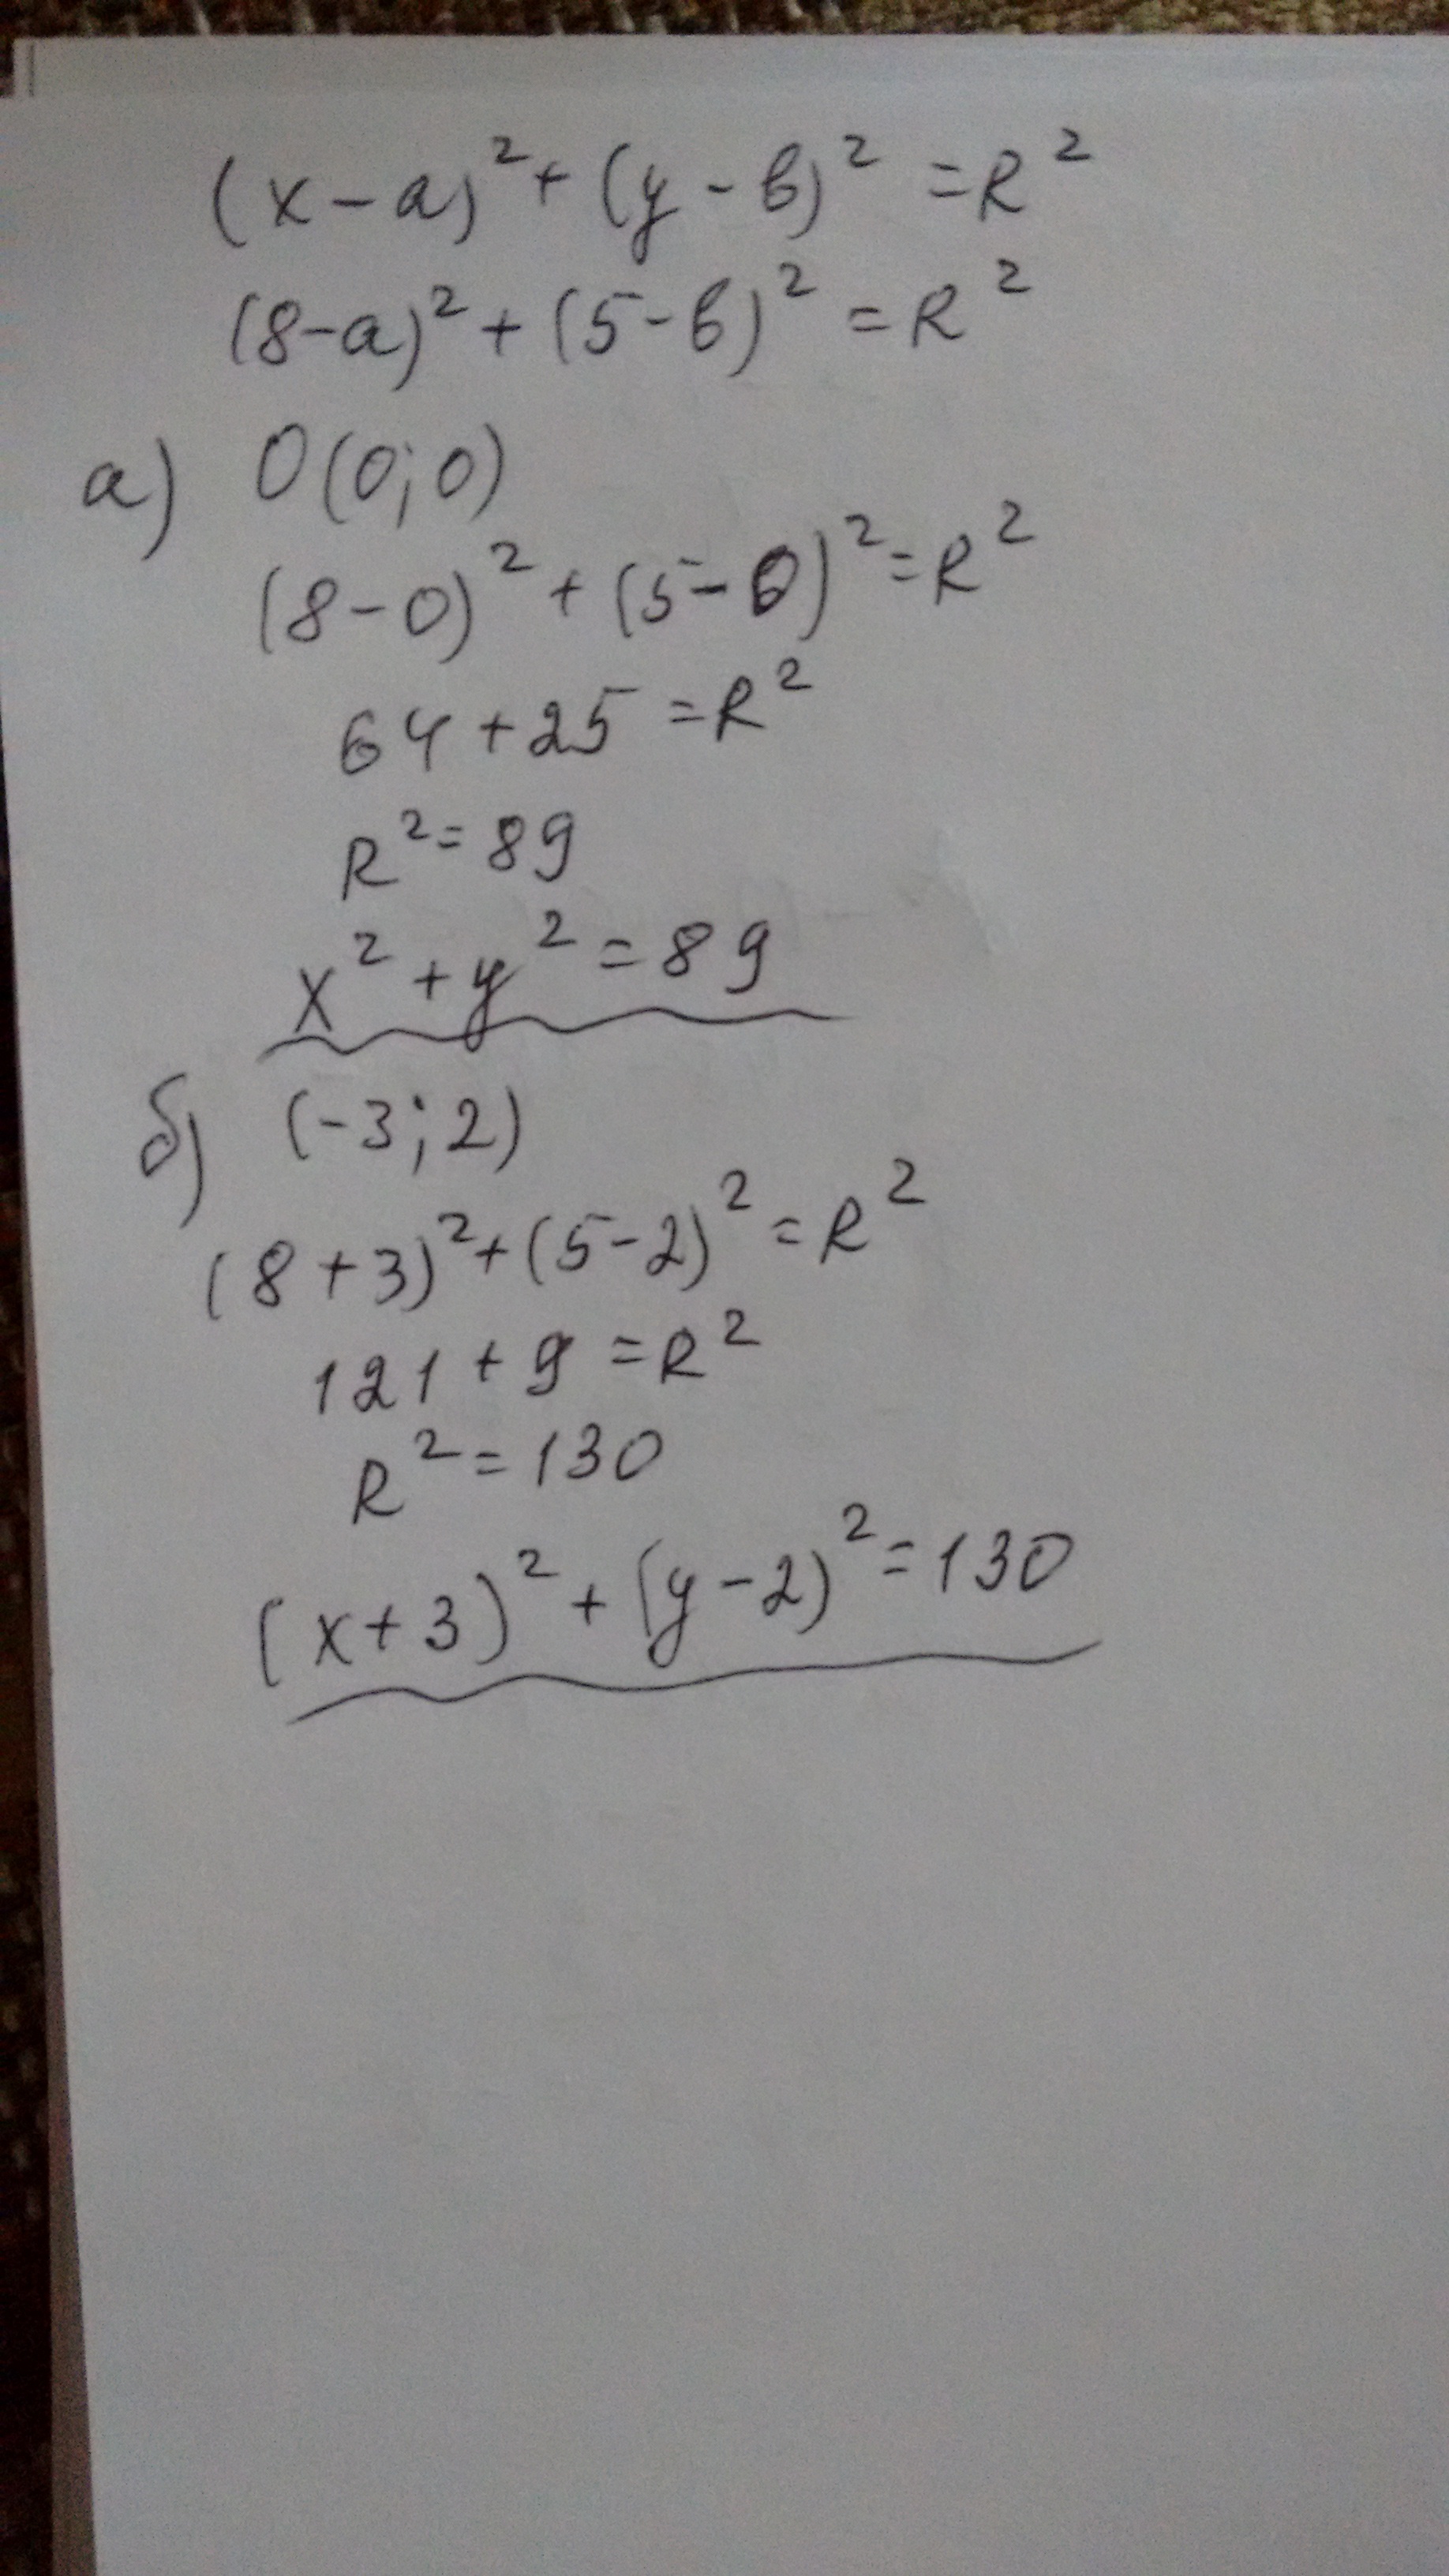 (x-a)² + (y-b)² = R²
(8-a)² + (5-b)² = R²
а) O(0;0)
(8-0)² + (5-0)² = R²
64 + 25 = R²
R² = 89
x² + y² = 89
б) (-3;2)
(8+3)² + (5-2)² = R²
121 + 9 = R²
R² = 130
(x+3)² + (y-2)² = 130